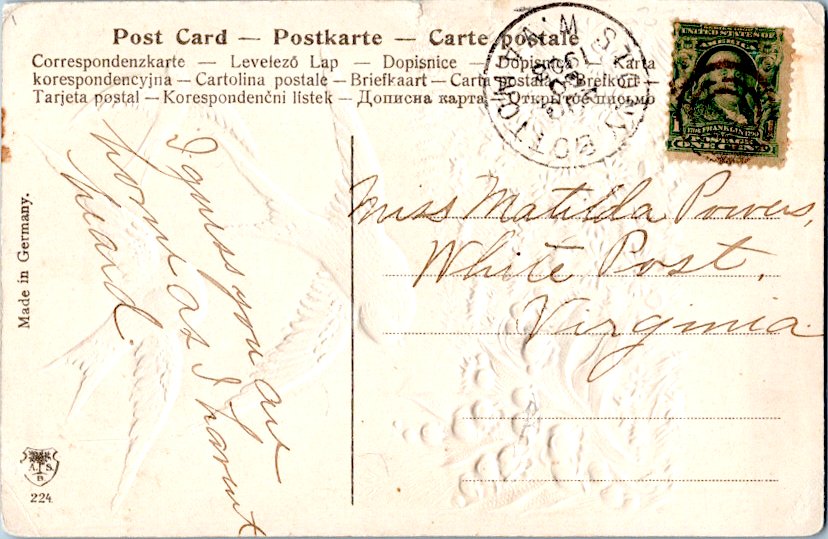 Post Card — Postkarte — Carte postale
Correspondenzkarte — Levelező Lap — Dopisnice — Dopisnica — Karta
korespondencyjna — Cartolina postale — Briefkaart — Carta postala — Brefkort —
Tarjeta postal — Korespondenční listek — Дописна карта — Открытое письмо
UNITED STATES OF
AMERICA
1706 FRANKLIN 1790
ONE CENT
1 1
I guess you are
home as I havent
heard.
Miss Matilda Powers,
White Post,
Virginia.
Made in Germany.
A. S.
B
224